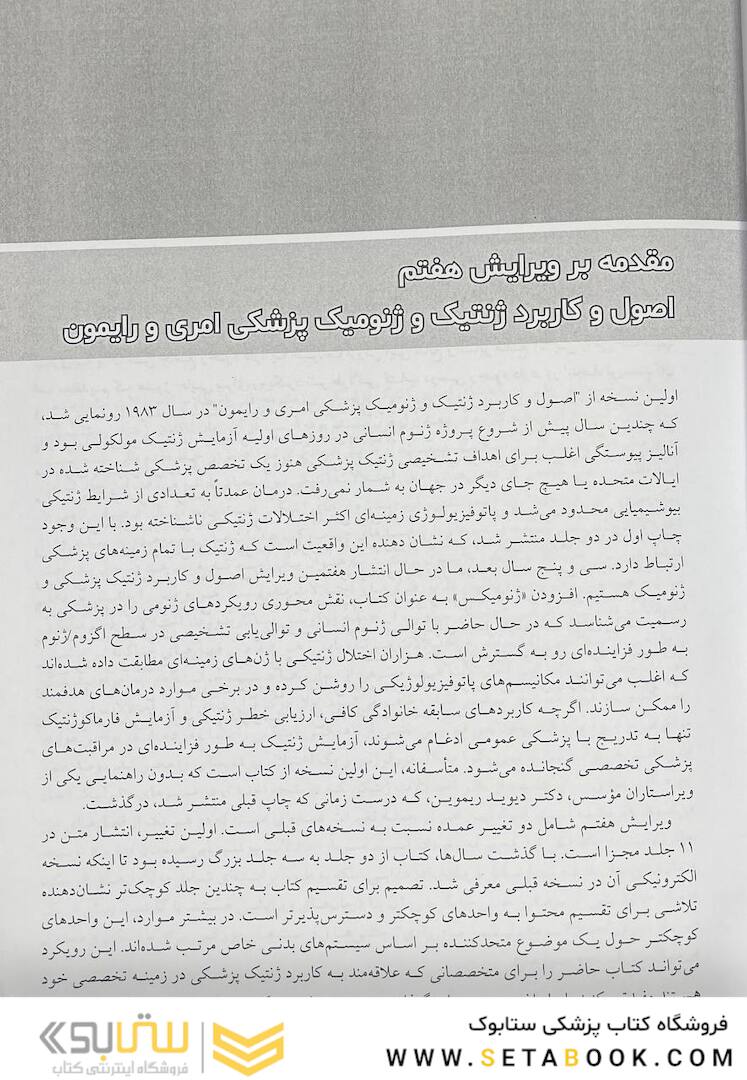 مقدمه بر ویرایش هفتم
اصول و کاربرد ژنتیک و ژنومیک پزشکی امری و رایمون
اولین نسخه از "اصول و کاربرد ژنتیک و ژنومیک پزشکی امری و رایمون" در سال ۱۹۸۳ رونمایی شد،
که چندین سال پیش از شروع پروژه ژنوم انسانی در روزهای اولیه آزمایش ژنتیک مولکولی بود و
آنالیز پیوستگی اغلب برای اهداف تشخیصی ژنتیک پزشکی هنوز یک تخصص پزشکی شناخته شده در
ایالات متحده یا هیچ جای دیگر در جهان به شمار نمی‌رفت. درمان عمدتاً به تعدادی از شرایط ژنتیکی
بیوشیمیایی محدود می‌شد و پاتوفیزیولوژی زمینه‌ای اکثر اختلالات ژنتیکی ناشناخته بود. با این وجود
چاپ اول در دو جلد منتشر شد، که نشان دهنده این واقعیت است که ژنتیک با تمام زمینه‌های پزشکی
ارتباط دارد. سی و پنج سال بعد، ما در حال انتشار هفتمین ویرایش اصول و کاربرد ژنتیک پزشکی و
ژنومیک هستیم. افزودن «ژنومیکس» به عنوان کتاب، نقش محوری رویکردهای ژنومی را در پزشکی به
رسمیت می‌شناسد که در حال حاضر با توالی ژنوم انسانی و توالی‌یابی تشخیصی در سطح اگزوم/ژنوم
به طور فزاینده‌ای رو به گسترش است. هزاران اختلال ژنتیکی با ژن‌های زمینه‌ای مطابقت داده شده‌اند
که اغلب می‌توانند مکانیسم‌های پاتوفیزیولوژیکی را روشن کرده و در برخی موارد درمان‌های هدفمند
را ممکن سازند. اگرچه کاربردهای سابقه خانوادگی کافی، ارزیابی خطر ژنتیکی و آزمایش فارماکوژنتیک
تنها به تدریج با پزشکی عمومی ادغام می‌شوند، آزمایش ژنتیک به طور فزاینده‌ای در مراقبت‌های
پزشکی تخصصی گنجانده می‌شود. متأسفانه، این اولین نسخه از کتاب است که بدون راهنمایی یکی از
ویراستاران مؤسس، دکتر دیوید ریموین، که درست زمانی که چاپ قبلی منتشر شد، درگذشت.
ویرایش هفتم شامل دو تغییر عمده نسبت به نسخه‌های قبلی است. اولین تغییر، انتشار متن در
۱۱ جلد مجزا است. با گذشت سال‌ها، کتاب از دو جلد به سه جلد بزرگ رسیده بود تا اینکه نسخه
الکترونیکی آن در نسخه قبلی معرفی شد. تصمیم برای تقسیم کتاب به چندین جلد کوچک‌تر نشان‌دهنده
تلاشی برای تقسیم محتوا به واحدهای کوچکتر و دسترس‌پذیرتر است. در بیشتر موارد، این واحدهای
کوچکتر حول یک موضوع متحدکننده بر اساس سیستم‌های بدنی خاص مرتب شده‌اند. این رویکرد
می‌تواند کتاب حاضر را برای متخصصانی که علاقه‌مند به کاربرد ژنتیک پزشکی در زمینه تخصصی خود
فروشگاه کتاب پزشکی ستابوک
WWW.SETABOOK.COM
ستابوک
فروشگاه اینترنتی کتاب